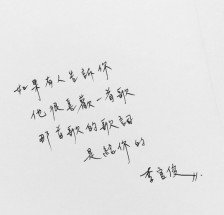 如果有人告訴你
他很喜歡一首歌
那首歌的歌詞
是給你的
李宜俊